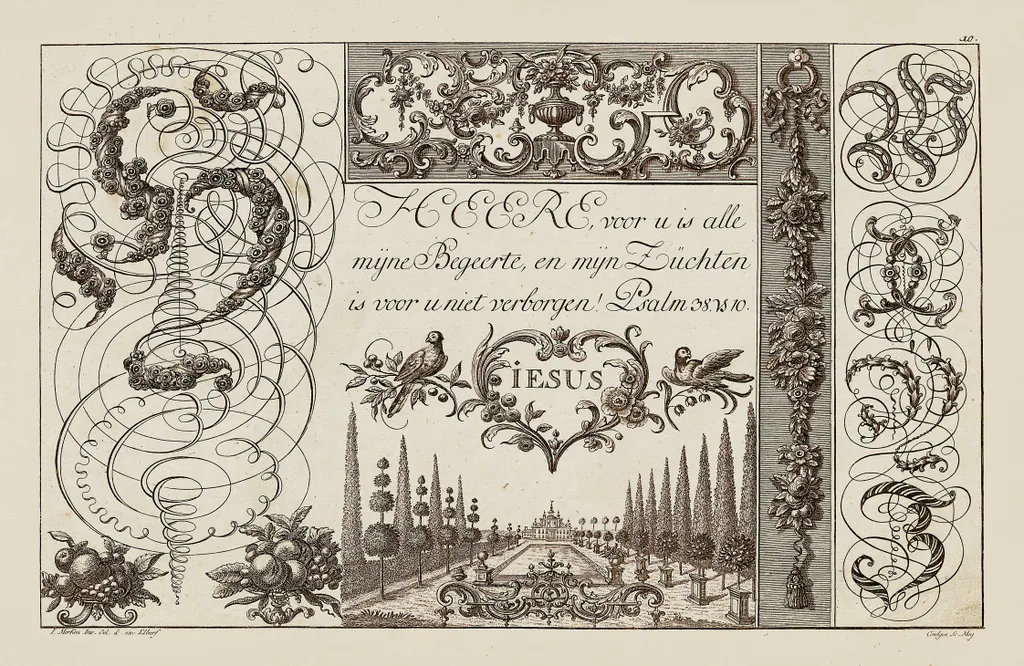 20.
HEERE, voor u is alle
mijne Begeerte, en mijn Züchten
is voor u niet verborgen! Psalm 38. vs 10.
iESUS
I. Merken Inv. Del. & exc. Elberf